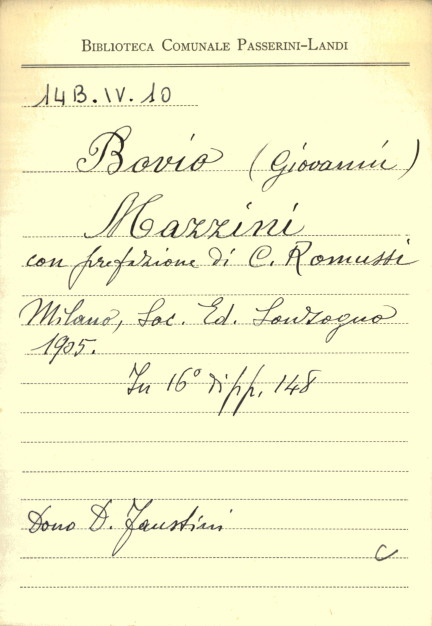 BIBLIOTECA COMUNALE PASSERINI-LANDI
14B.IV.10
Bovio (Giovanni)
Mazzini
con prefazione di C. Romussi
Milano, Soc. Ed. Sonzogno
1905.
In 16° di pp. 148
Dono D. Faustini
C